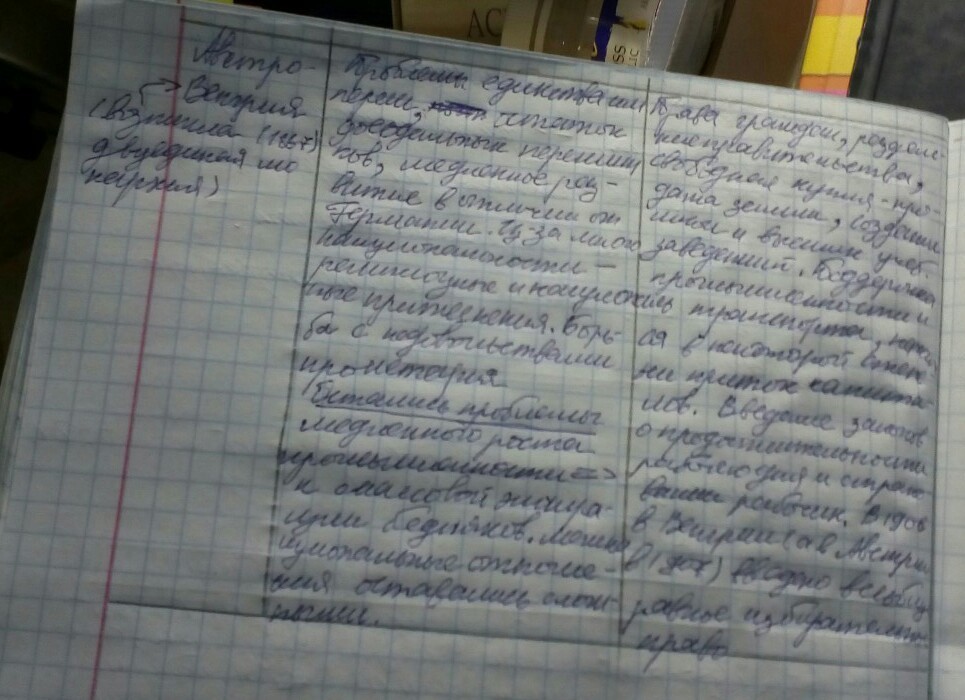 AC
SS
LIC
Австро-
Венгрия
(Возникла (1867)
двуединая мо
нархия)
Проблемы единства им
перии, остаток
феодальных пережит
ков, медленное раз-
витие в отличии от
Германии. Из-за много
национальности –
религиозные и национал
ные притеснения. Борь-
ба с недовольствами
пролетария
Остались проблемы
медленного роста
промышленности =>
к массовой эмигра-
ции бедняков. Межна
циональные отноше-
ния оставались слож
ными.
Права граждан,
неправительства,
свободная купля-про-
дажа земли, создание
и высших учеб-
заведений. Поддержка
промышленности и
транспорта,
ся в некоторой степ
ни приток капита-
лов. Введение законов
о продолжительности
рабочего дня и страх-
вании рабочих. В 1908
в Венгрии (а в Австрии
в 1907) введено всеобщ
равное избирательн
право